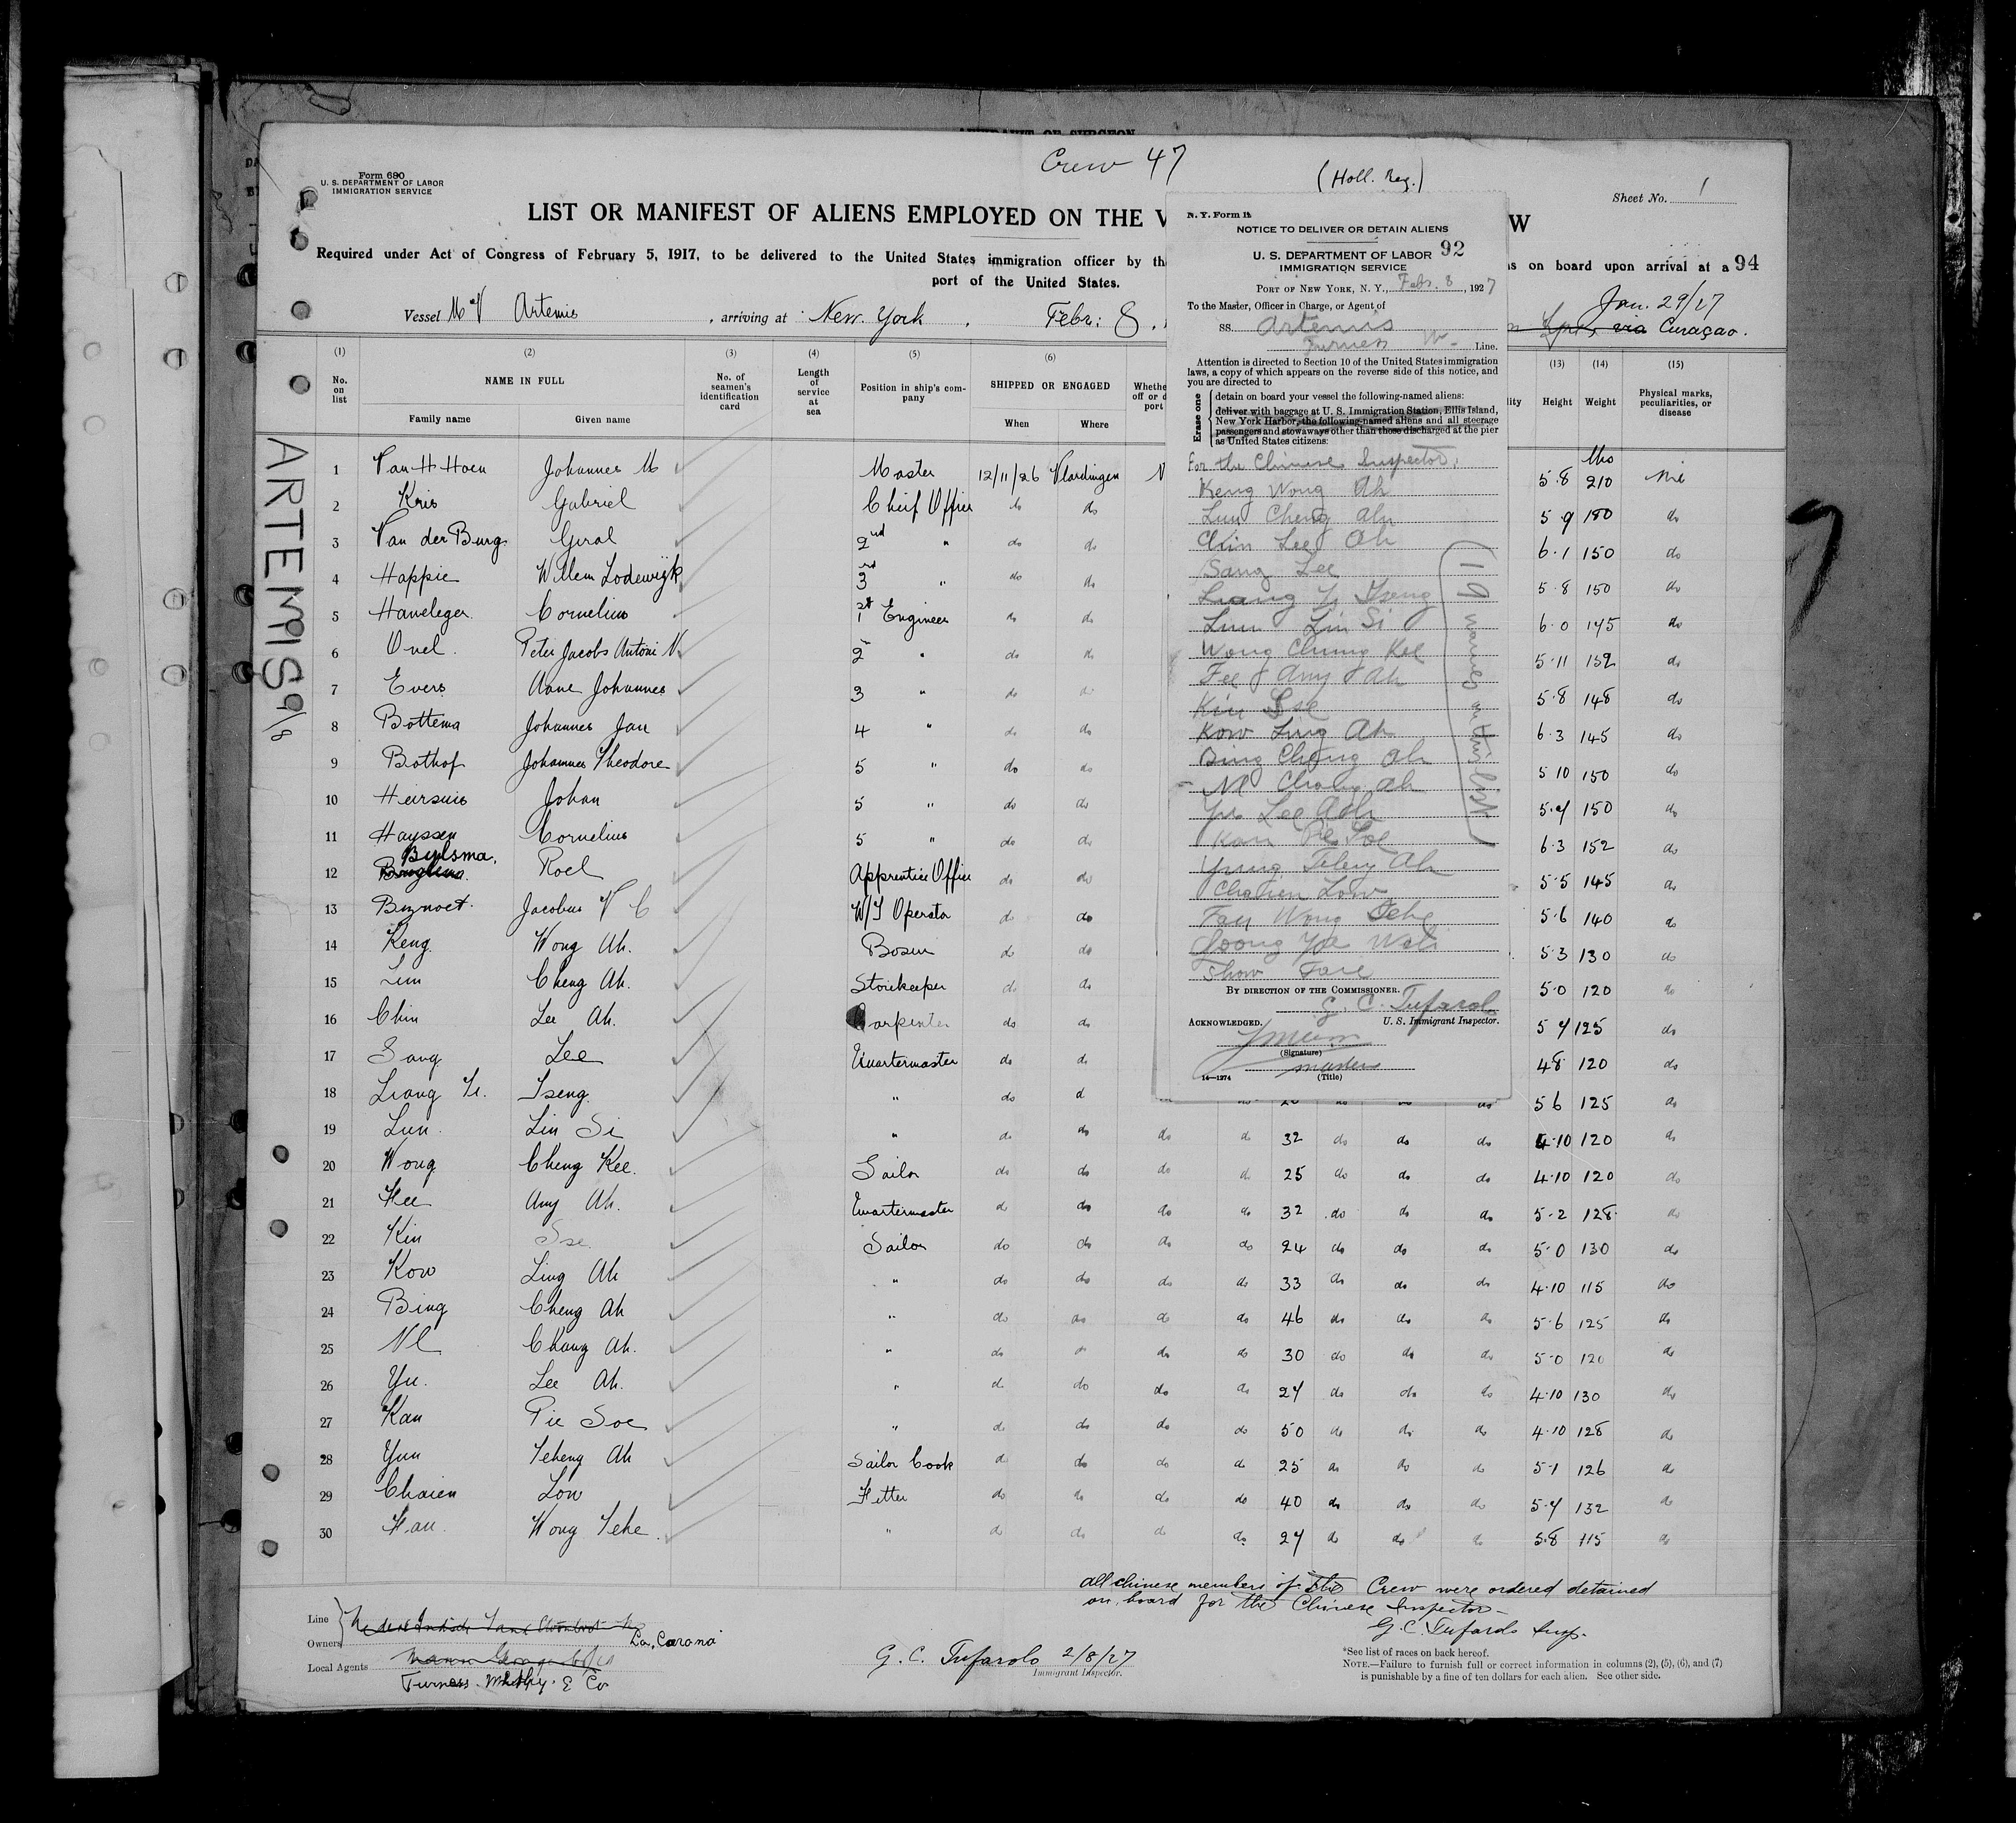 Crew 47
(Holl. Reg.)
Form 680
U. S. DEPARTMENT OF LABOR
IMMIGRATION SERVICE
Sheet No. 1
LIST OR MANIFEST OF ALIENS EMPLOYED ON THE V W
Required under Act of Congress of February 5, 1917, to be delivered to the United States immigration officer by th s on board upon arrival at a 94
port of the United States.
Vessel M V Artemis, arriving at New York, Febr: 8, Jan. 29/27
via Curaçao.
(1) (2) (3) (4) (5) (6) (13) (14) (15)
No. on list NAME IN FULL No. of seamen's identification card Length of service at sea Position in ship's company SHIPPED OR ENGAGED Height Weight Physical marks, peculiarities, or disease
Family name Given name When Where
ARTEMIS 9/8
lbs
1 Van H Hoen Johannes M Master 12/11/26 Vlardingen 5.8 210 Nil
2 Kris Gabriel Cheif Officer do do 5 9 180 do
3 Van der Burg Geral 2nd " do do 6.1 150 do
4 Happie Willem Lodewijk 3rd " do do 5.8 150 do
5 Haneleger Cornelius 1st Engineer do do 6.0 145 do
6 Onel Peter Jacobs Antoni V. 2 " do do 5.11 152 do
7 Evers Aane Johannes 3 " do do 5.8 148 do
8 Bottema Johannes Jan 4 " do do 6.3 145 do
9 Bothof Johannes Theodore 5 " do do 5 10 150 do
10 Heirsuis Johan 5 " do do 5.4 150 do
11 Hayssen Cornelius 5 " do do 6.3 152 do
12 Bylsma, Roel Apprentice Officer do do 5.5 145 do
13 Jacobus V C W/T Operator do do 5.6 140 do
14 Keng Wong Ah. Bosun do do 5.3 130 do
15 Lun Cheng Ah. Storekeeper do do 5.0 120 do
16 Chin Lee Ah. Carpenter do do 5 4 125 do
17 Sang Lee Quartermaster do do 4 8 120 do
18 Liang Y. Tseng " do d 5 6 125 do
19 Lun Lin Si " do do do do 32 do do do 4.10 120 do
20 Wong Cheng Kee. Sailor do do do do 25 do do do 4.10 120 do
21 Fee Any Ah. Quartermaster do do do do 32 do do do 5.2 128 do
22 Kin Sse Sailor do do do do 24 do do do 5.0 130 do
23 Kow Ling Ah " do do do do 33 do do do 4.10 115 do
24 Bing Cheng Ah " do do do do 46 do do do 5.6 125 do
25 Ne Chang Ah. " do do do do 30 do do do 5.0 120 do
26 Yu. Lee Ah. " do do do do 27 do do do 4.10 130 do
27 Kan Pie Soe " do do do do 50 do do do 4.10 128 do
28 Yun Tcheng Ah Sailor Cook do do do do 25 do do do 5.1 126 do
29 Chaien Low Fitter do do do do 40 do do do 5.4 132 do
30 Fau Wong Tche " do do do do 27 do do do 5.8 115 do
N. Y. Form 1
NOTICE TO DELIVER OR DETAIN ALIENS
U. S. DEPARTMENT OF LABOR 92
IMMIGRATION SERVICE
PORT OF NEW YORK, N. Y., Feb. 8, 1927
To the Master, Officer in Charge, or Agent of
SS. Artemis
Furness W- Line.
Attention is directed to Section 10 of the United States immigration
laws, a copy of which appears on the reverse side of this notice, and
you are directed to
Erase one
detain on board your vessel the following-named aliens:
deliver with baggage at U. S. Immigration Station, Ellis Island,
New York Harbor, the following-named aliens and all steerage
passengers and stowaways other than those discharged at the pier
as United States citizens:
For the Chinese Inspector.
Keng Wong Ah
Lun Cheng Ah
Chin Lee Ah
Sang Lee
Liang Y. Tseng
Lun Lin Si
Wong Chung Kee
Fee Any Ah
Kin Sse
Kow Ling Ah
Bing Cheng Ah
Ne Chang Ah
Yu Lee Ah
Kan Pie Soe
Yung Tcheng Ah
Chaien Low
Fau Wong Tche
Show
(19 names on this list)
BY DIRECTION OF THE COMMISSIONER.
G. C. Tufarolo
U. S. Immigrant Inspector.
ACKNOWLEDGED.
(Signature)
master
(Title)
14—1274
all chinese members of the Crew were ordered detained
on board for the Chinese Inspector-
G. C. Tufarolo Insp.
Line
Owners La Carona
Local Agents
Furness Whithy & Co
G. C. Tufarolo 2/8/27
Immigrant Inspector.
*See list of races on back hereof.
NOTE.—Failure to furnish full or correct information in columns (2), (5), (6), and (7)
is punishable by a fine of ten dollars for each alien. See other side.